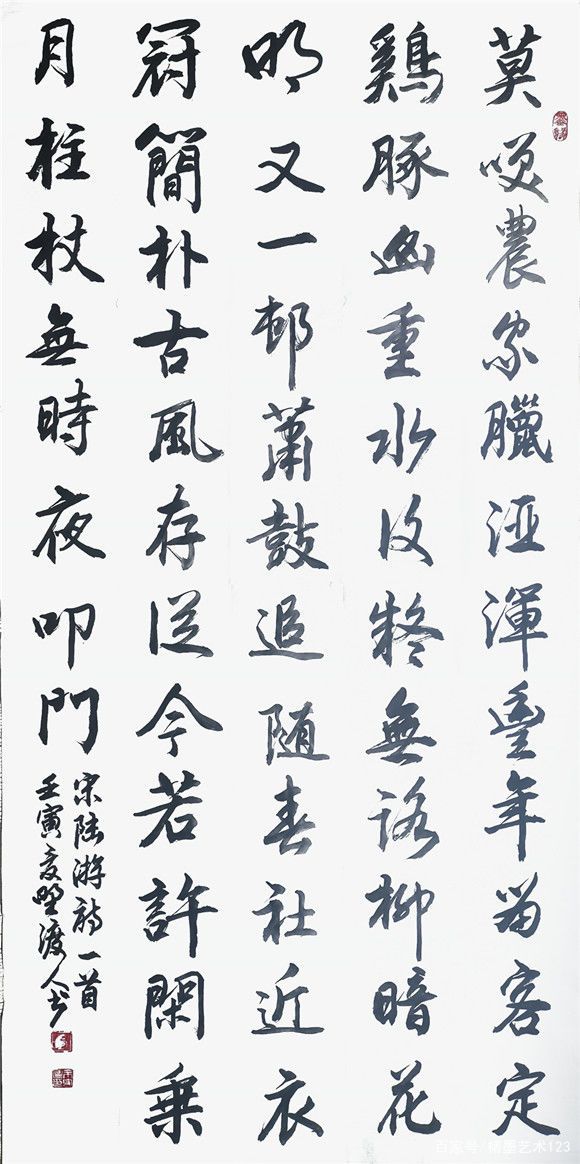 莫咲農家臘酒渾豐年留客足
鷄豚山重水復疑無路柳暗花
明又一邨蕭鼓追随春社近衣
冠簡朴古風存從今若許閑乗
月柱杖無時夜叩門
宋陆游詩一首
壬寅夏野渡人书
百家号/情墨艺术123